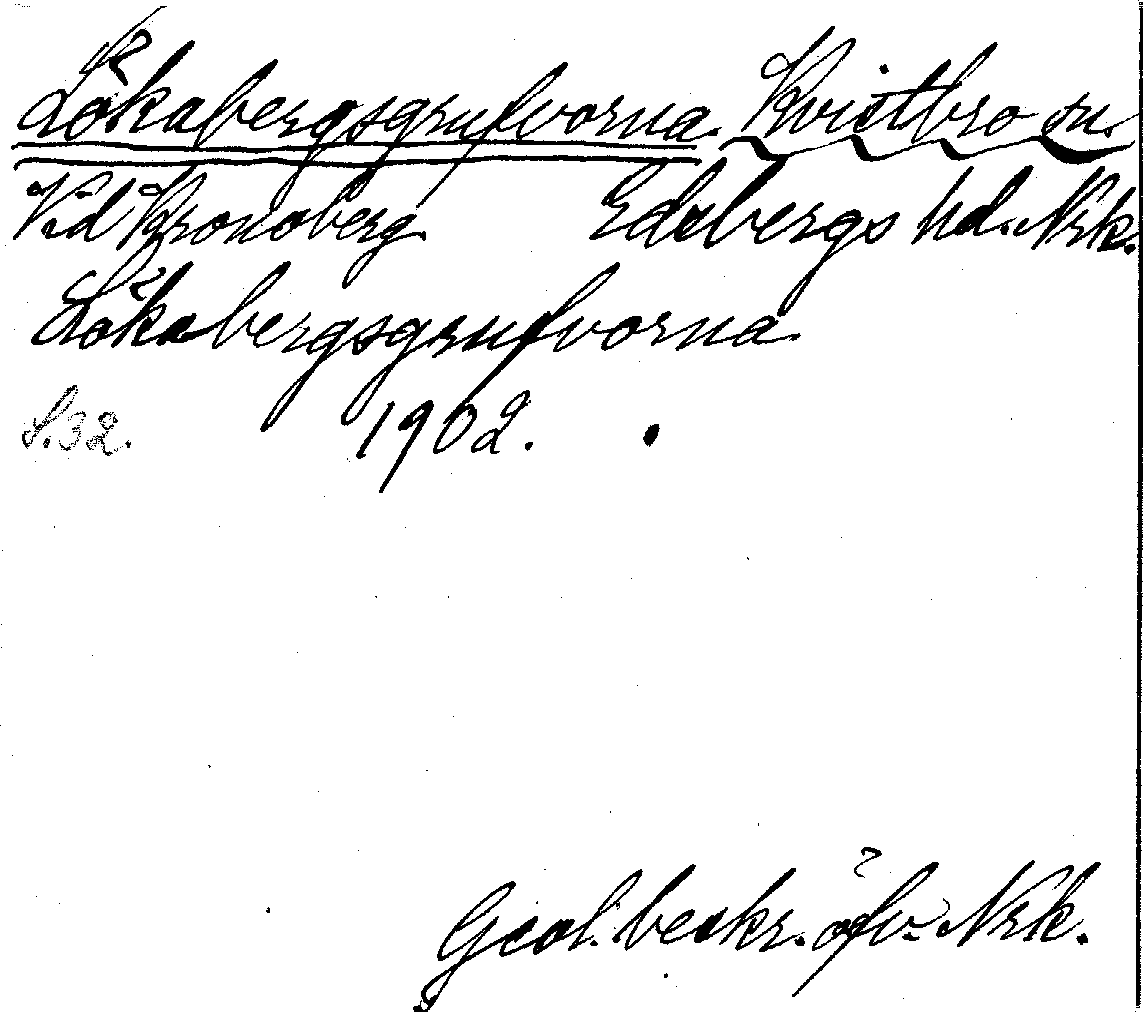 Lökabergsgrufvorna. Kvistbro sn.
Vid Kronoberg Edsbergs hd. Nrk.
Lökabergsgrufvorna
S. 32. 1902.
Geol. beskr. öfv. Nrk.